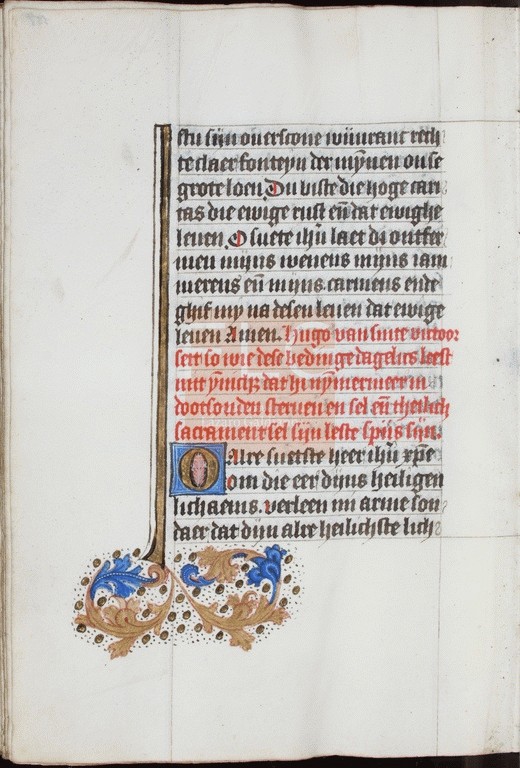 stu sijn overscone wijnranc rech
te claer fonteyn der mynen onse
grote loen Du biste die hoge cari
tas die ewige rust en̄ dat ewighe
leven O suete ih̄u laet di ontfer
men mijns wenens mijns iam
merens en̄ mijns carmens ende
ghif my na desen leven dat ewige
leven Amen. Hugo van sinte victoor
seit so wie dese bedinge dagelics leest
mit ynnich; dat hi nymmermeer in
dootsonden sterven en sel en̄ theilich
sacrament sel sijn leste spijs sijn.
O Alre suetste heer ih̄u xp̄e
om die eer dijns heiligen
lichaems. verleen mi arme son
daer dat dijn alre heilichste lich